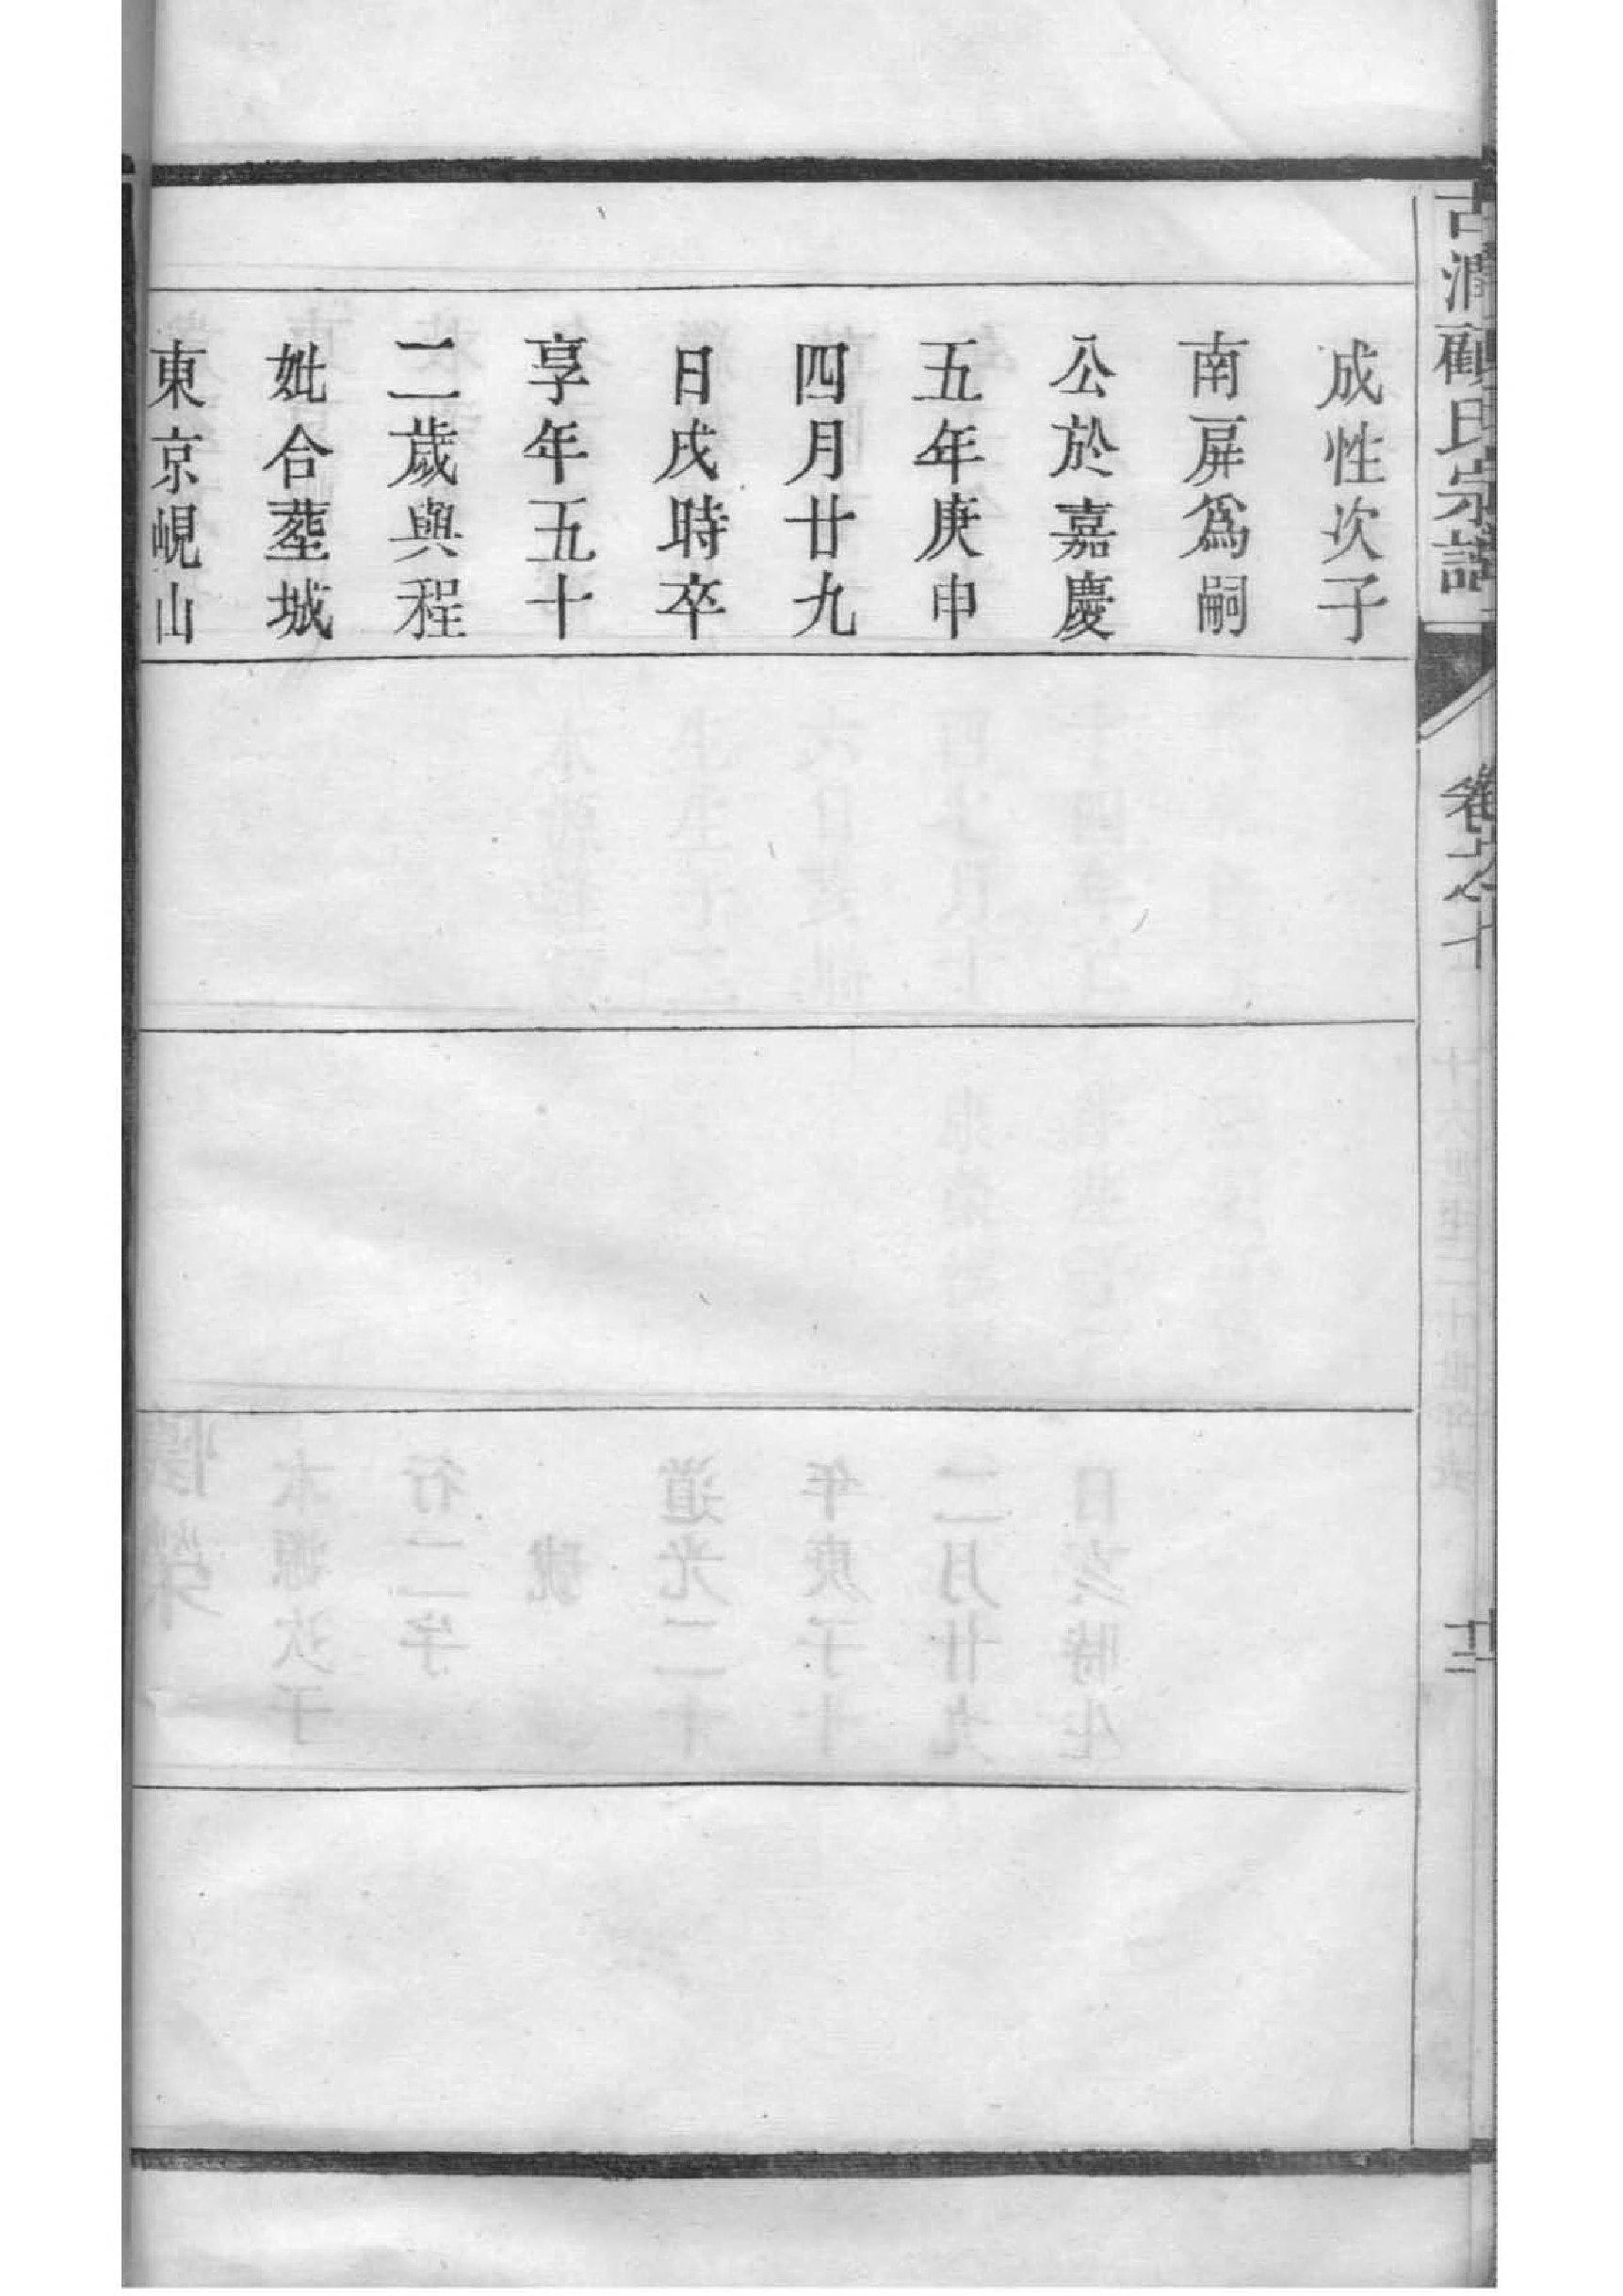 古潤顧氏宗譜
卷之十
十二
成性次子
南屏爲嗣
公於嘉慶
五年庚申
四月廿九
日戌時卒
享年五十
二歲與程
妣合葬城
東京峴山